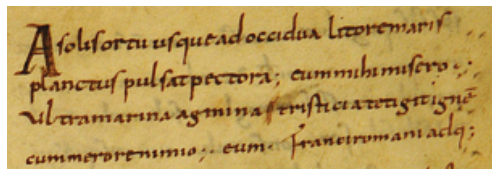 A solis ortu usque ad occidua litore maris
planctus pulsat pectora; eummihi misero;
Ultramarina agmina tristicia tetigit ignẽ
cummerore nimio; eum. Franci romani adq;